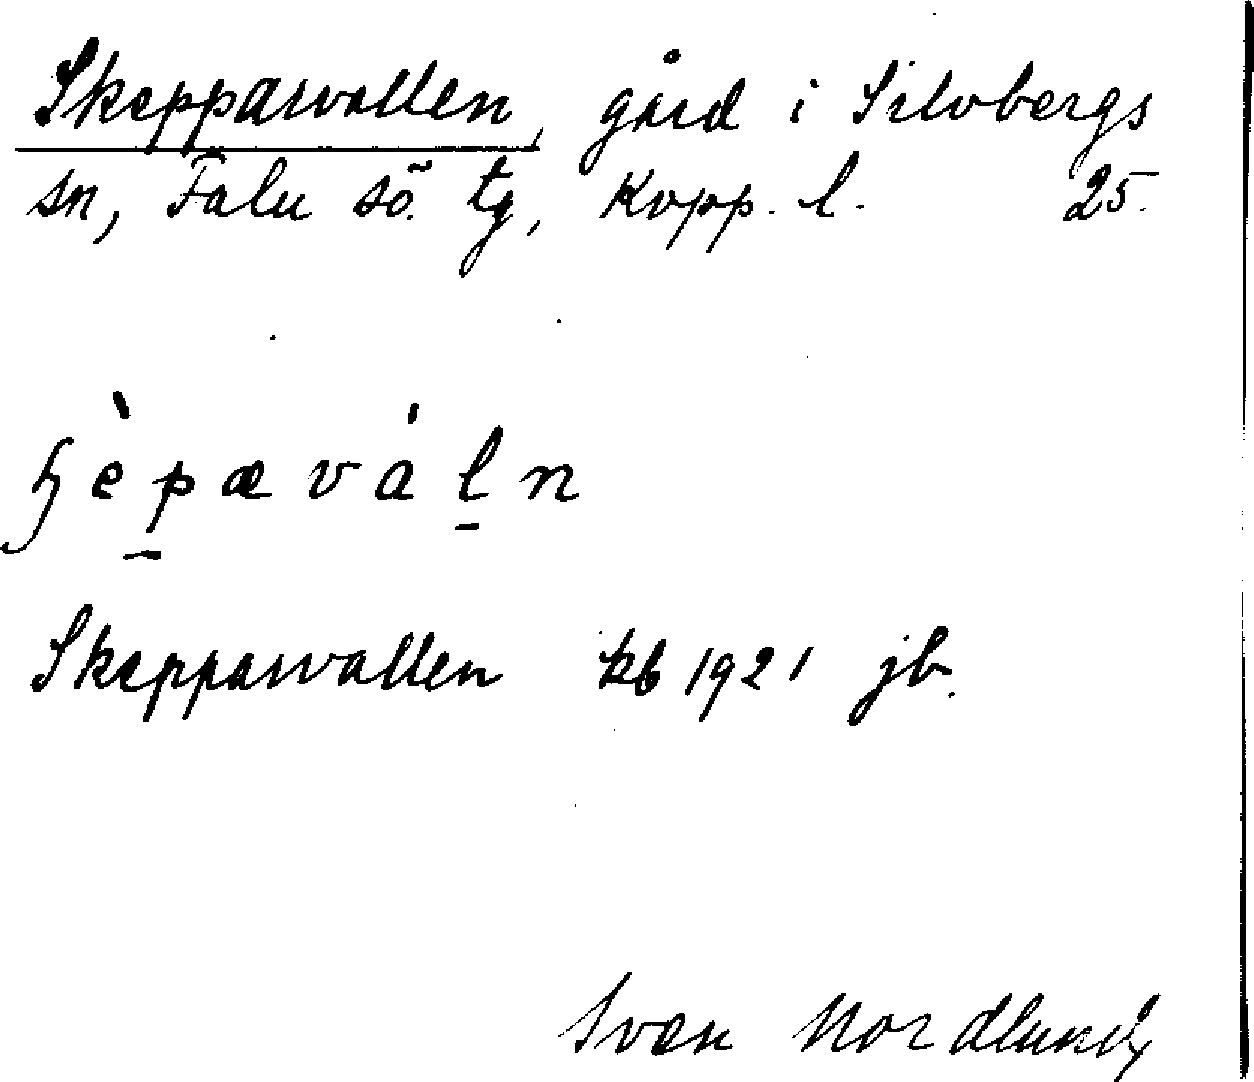 Skepparvallen, gård i Silvbergs
sn, Falu sö. tg, Kopp. l. 25.
ꞕèpævàln
Skepparvallen kb 1921 jb.
Sven Nordlund